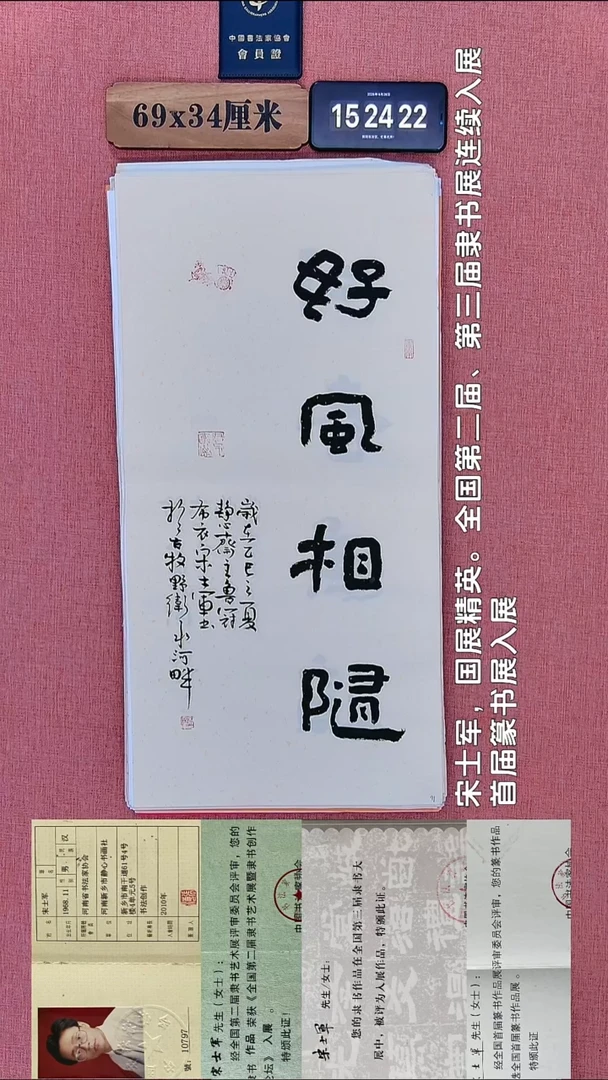 中國書法家協會
會員證
69x34厘米
15 24 22
好風相隨
歲在乙巳之夏
靜心齋主魯冠
布衣宋士軍書
於古牧野衛水河畔
宋士军，国展精英。全国第二届、第三届隶书展连续入展
首届篆书展入展
宋士军
男
汉
1968.11
河南省书法家协会
河南新乡市静心书画社
新乡市南干道61号4号
楼4单元5号
书法创作
2010年
號：10797
宋士军 先生（女士）：
经全国第二届隶书艺术展评审委员会评审，您的
隶书 作品 荣获《全国第二届隶书艺术展暨隶书创作
论坛》入展 。
特颁此证！
宋士军 先生/女士：
您的隶书作品在全国第三届隶书大
展中，被评为入展作品，特颁此证。
士军 先生（女士）：
经全国首届篆书作品展评审委员会评审，您的篆书作品
全国首届篆书作品展。
特颁此证